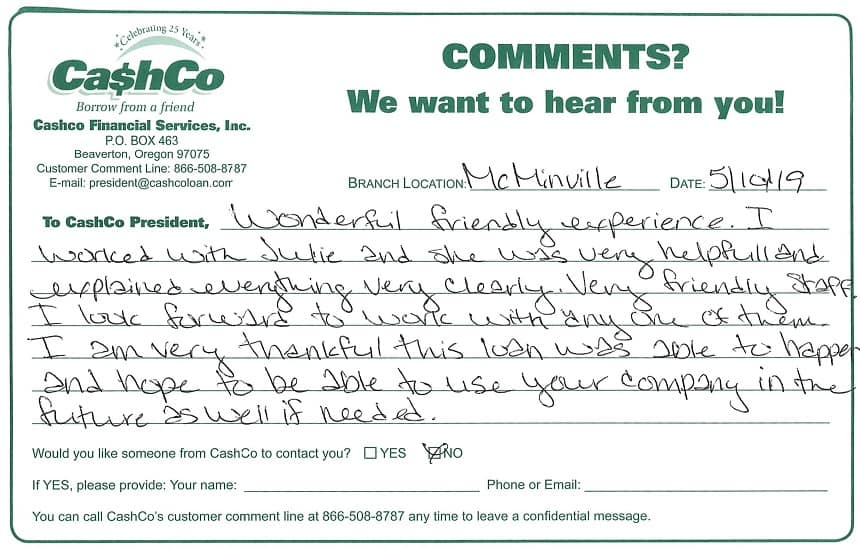 Celebrating 25 Years
Ca$hCo
Borrow from a friend
Cashco Financial Services, Inc.
P.O. BOX 463
Beaverton, Oregon 97075
Customer Comment Line: 866-508-8787
E-mail: president@cashcoloan.com
COMMENTS?
We want to hear from you!
BRANCH LOCATION: McMinville DATE: 5/10/19
To CashCo President, Wonderful friendly experience. I
worked with Julie and she was very helpfull and
explained everything very clearly. Very friendly staff.
I look forward to work with any one of them.
I am very thankful this loan was able to happen
and hope to be able to use your company in the
future as well if needed.
Would you like someone from CashCo to contact you? YES NO
If YES, please provide: Your name: Phone or Email:
You can call CashCo's customer comment line at 866-508-8787 any time to leave a confidential message.